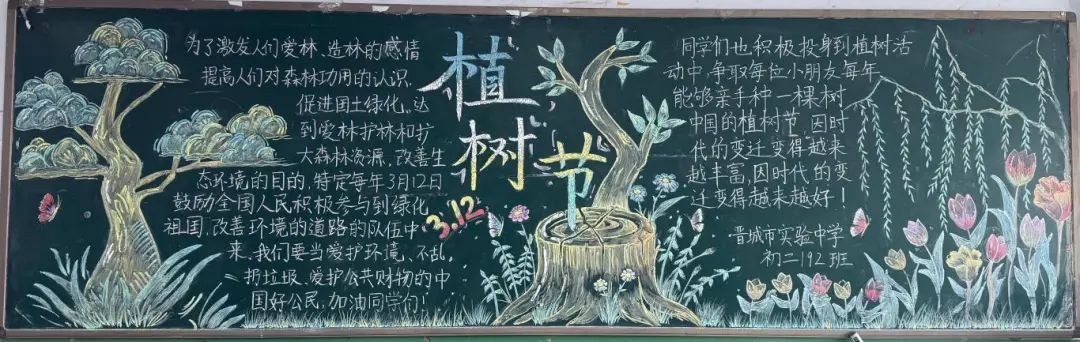 为了激发人们爱林、造林的感情
提高人们对森林功用的认识,
促进国土绿化。达
到爱林护林和扩
大森林资源、改善生
态环境的目的,特定每年3月12日
鼓励全国人民积极参与到绿化
祖国,改善环境的道路的队伍中
来。我们要当爱护环境、不乱
扔垃圾、爱护公共财物的中
国好公民,加油同学们!
植
树
节
3.12
同学们也积极投身到植树活
动中,争取每位小朋友每年
能够亲手种一棵树
中国的植树节,因时
代的变迁变得越来
越丰富,因时代的变
迁变得越来越好!
晋城市实验中学
初二192班